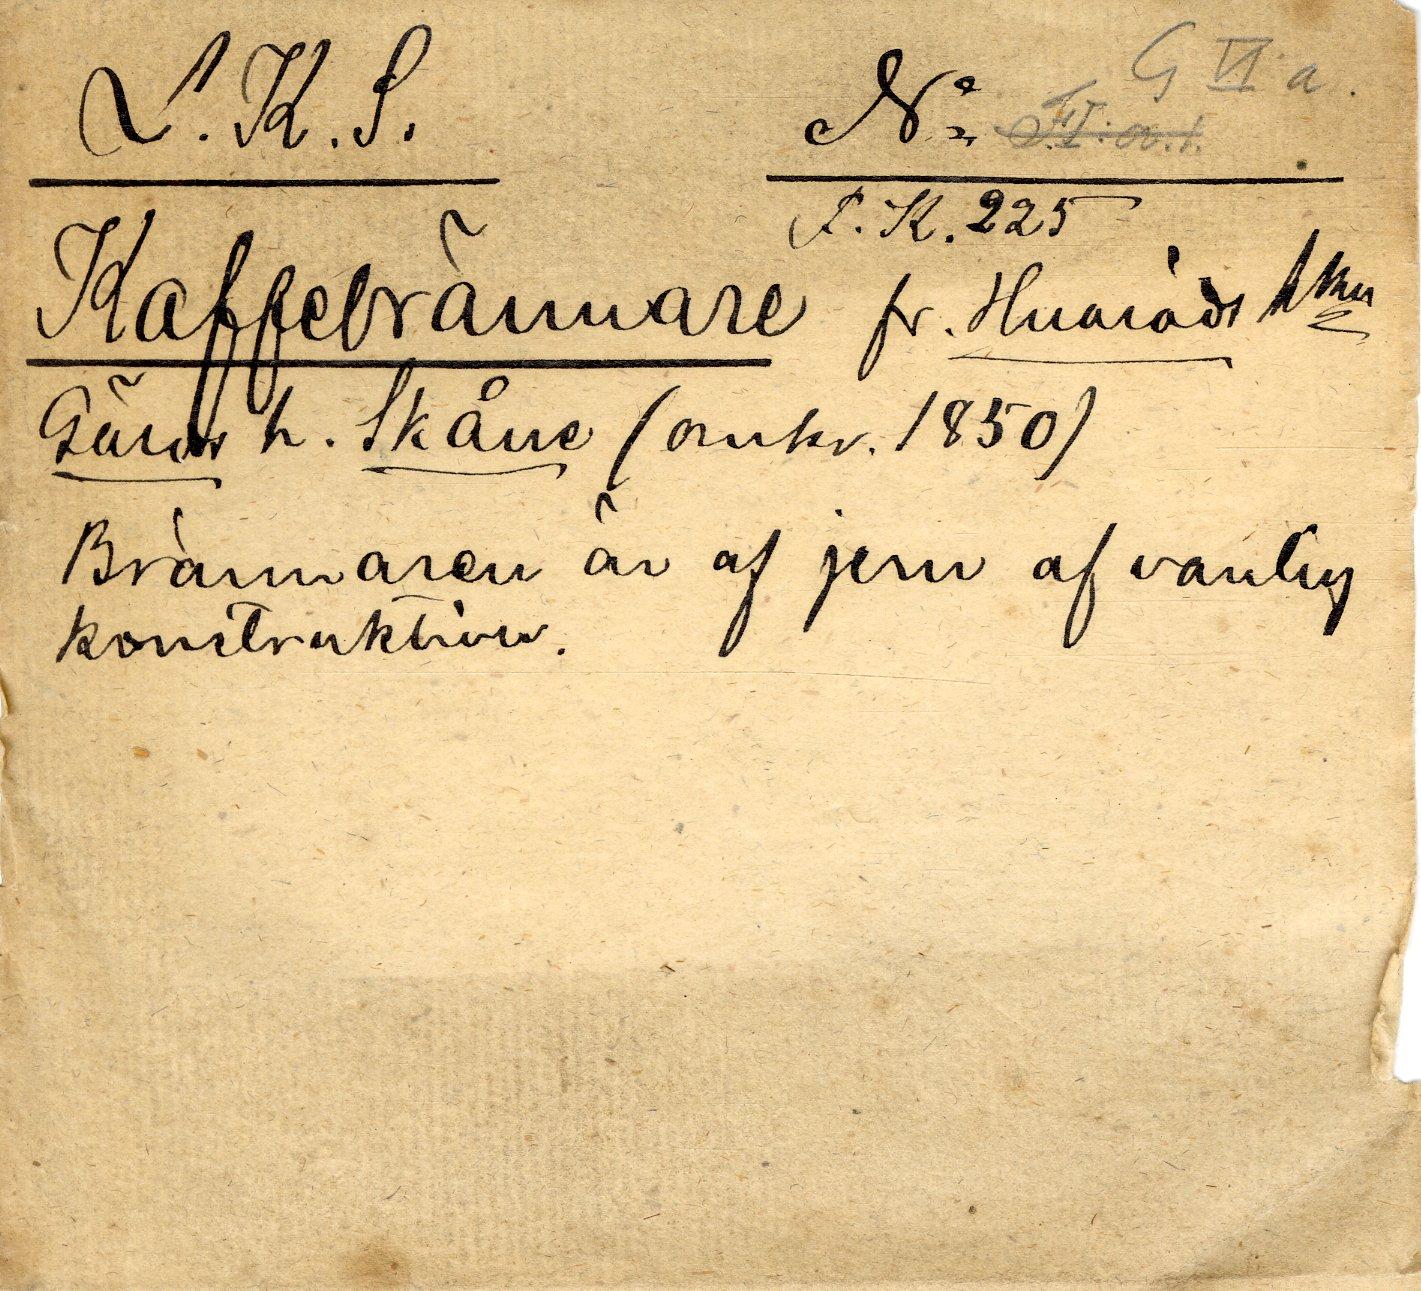 L.K.S. No G VI a.
F.K. 225
Kaffebrännare fr. Huaröds skn
Gärds h. Skåne (omkr. 1850)
Brännaren är af jern af vanlig
konstruktion.